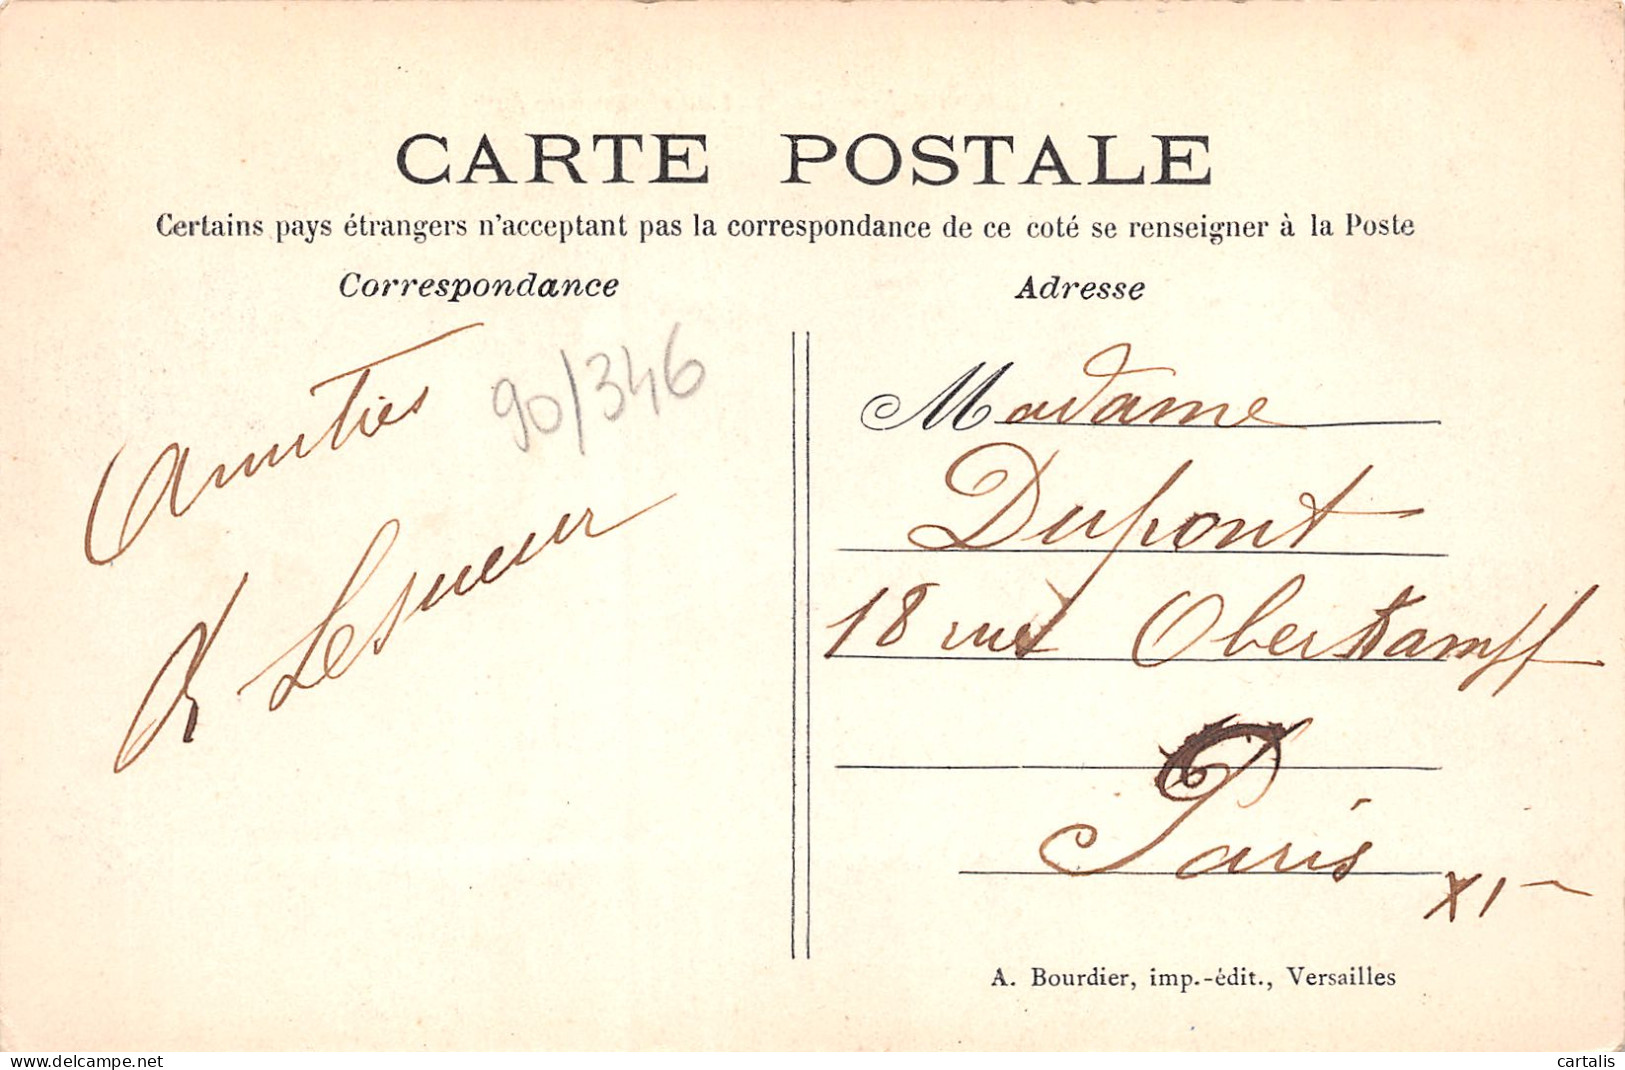 CARTE POSTALE
Certains pays étrangers n'acceptant pas la correspondance de ce coté se renseigner à la Poste
Correspondance
Adresse
Amitiés
90/346
Lesueur
Madame
Dupont
18 rue Oberkampf
Paris
XI
A. Bourdier, imp.-édit., Versailles
cartalis